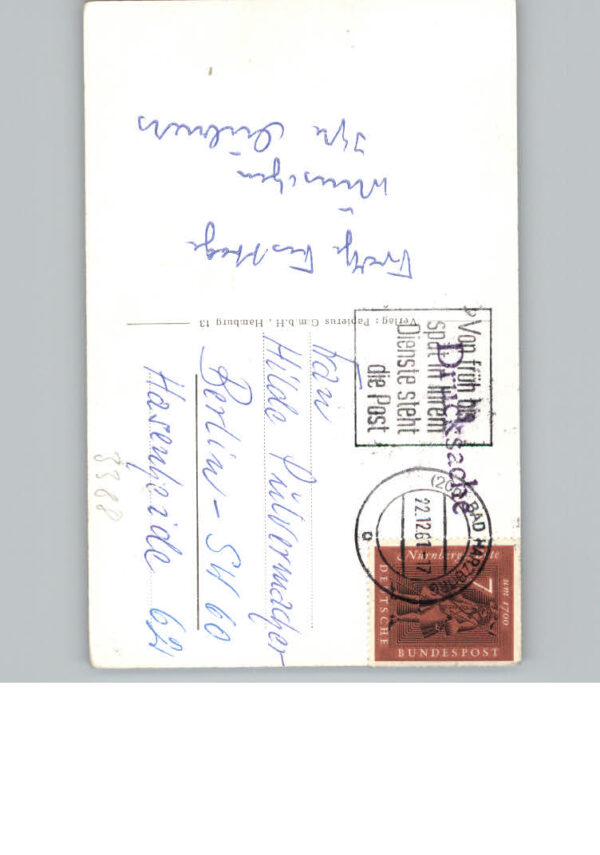 Frohe Festtage
wünschen
Ihre
Verlag: Papierus G.m.b.H., Hamburg 13
Frau
Hilde Pulvermacher
Berlin - SW 60
Hasenheide 62
3368
Drucksache
Von früh bis
spät in Ihrem
Dienste steht
die Post
BAD HARZBURG
22.12.61
a
Nürnberger
um 1700
7
DEUTSCHE
BUNDESPOST